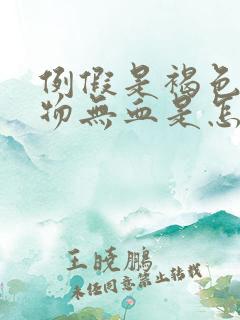 例假是褐色
物無血是怎
王晓鹏
未经同意禁止转载